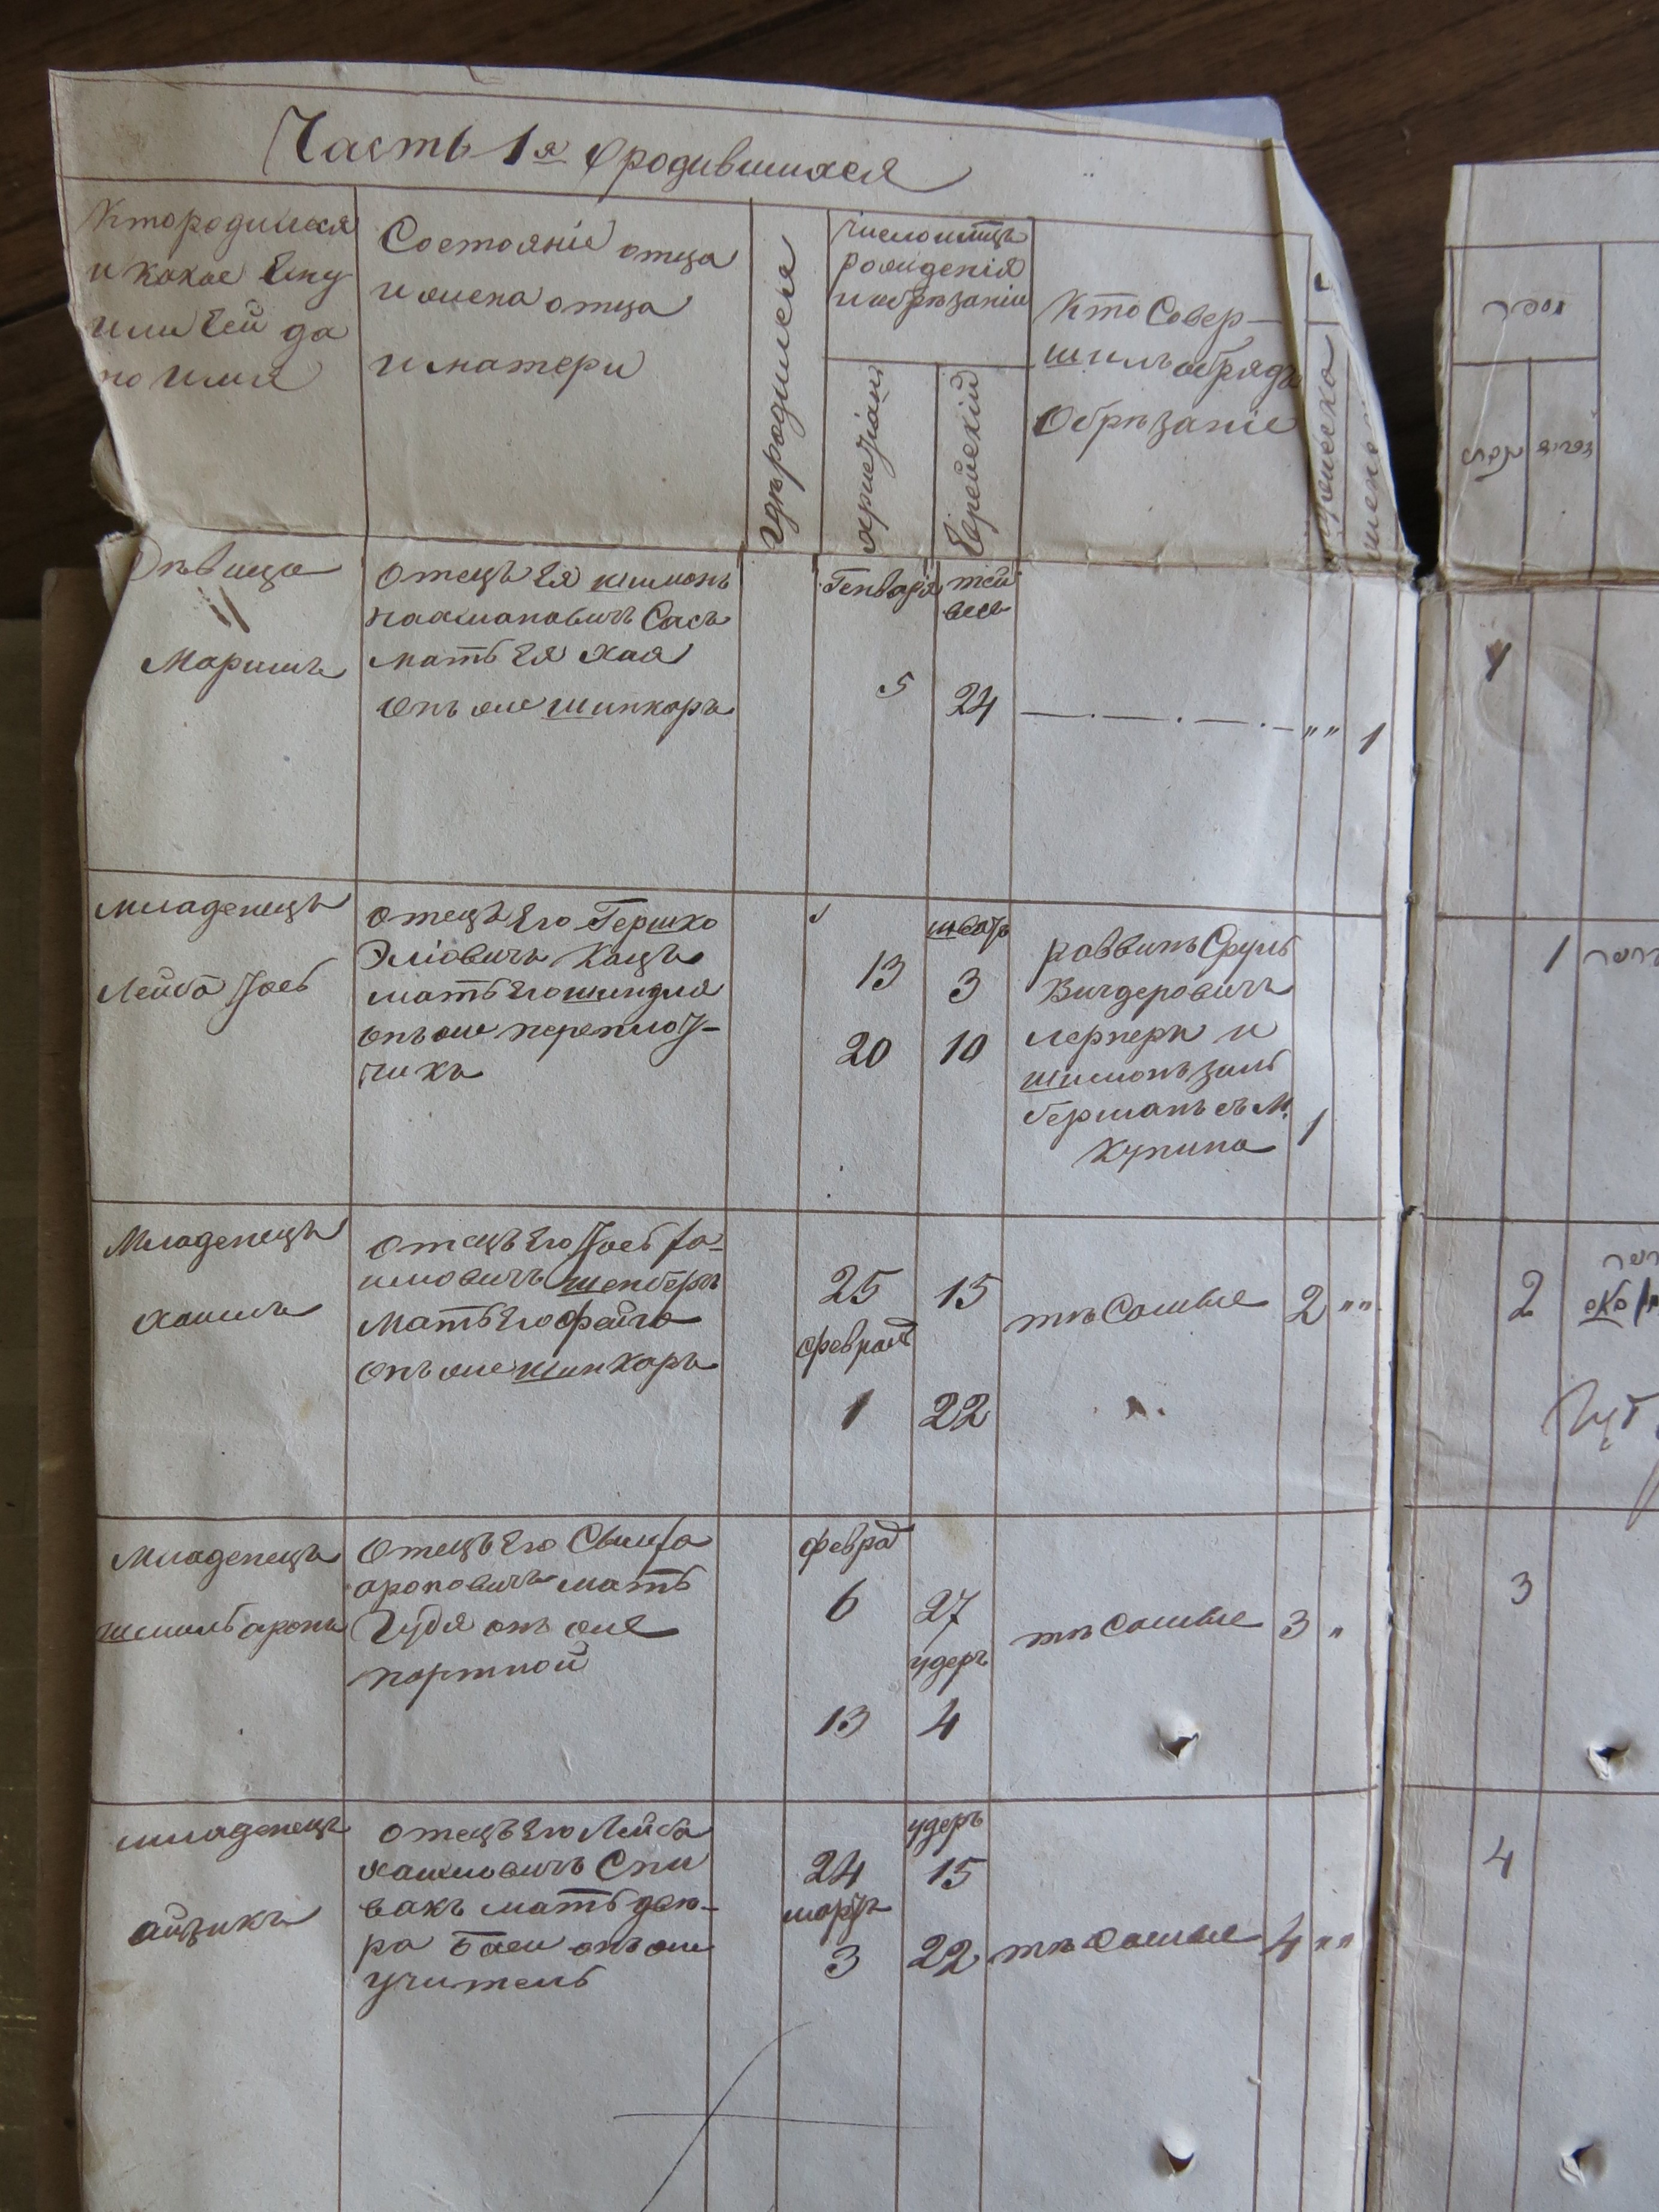 Часть 1я о родившихся
Кто родился
и какое Ему
или Ей да
но имя
Состояніе отца
и имена отца
и матери
Гдѣ родился
число и мѣцъ
рожденія
и обрѣзанія
христіан
Еврейскій
Кто Совер-
шилъ обрядъ
Обрѣзаніе
мужеска
женска
Дѣвица
Маримъ
Отецъ Ея шимонъ
нахмановичъ Сасъ
мать Ея хая
Онъ же шинкаръ
Генваря
5
тей
весъ
24
" "
1
младенецъ
Лейба Іось
отецъ Его Гершко
Эліовичъ Кацъ
мать Его шендля
онъ же переплот-
чикъ
13
20
шватъ
3
10
раввинъ Сруль
Вигдеровичъ
лернеръ и
шимонъ зиль
берманъ съ М.
Купина
1
Младенецъ
хаимъ
Отецъ Его Іось ха-
имовичъ шенберъ
Мать Его фейга
Онъ же шинкаръ
25
февраль
1
15
22
тѣ Самые
2
" "
Младенецъ
шмиль аронъ
Отецъ Его Симха
ароновичъ мать
Гудя онъ же
портной
феврал
6
13
27
удеръ
4
тѣ Самые
3
"
младенецъ
айзикъ
отецъ Его Лейба
хаимовичъ Спи
вакъ мать двю-
ра Баси онъ же
учитель
24
мартъ
3
удеръ
15
22
тѣ Самые
4
" "
1
1
2
3
4